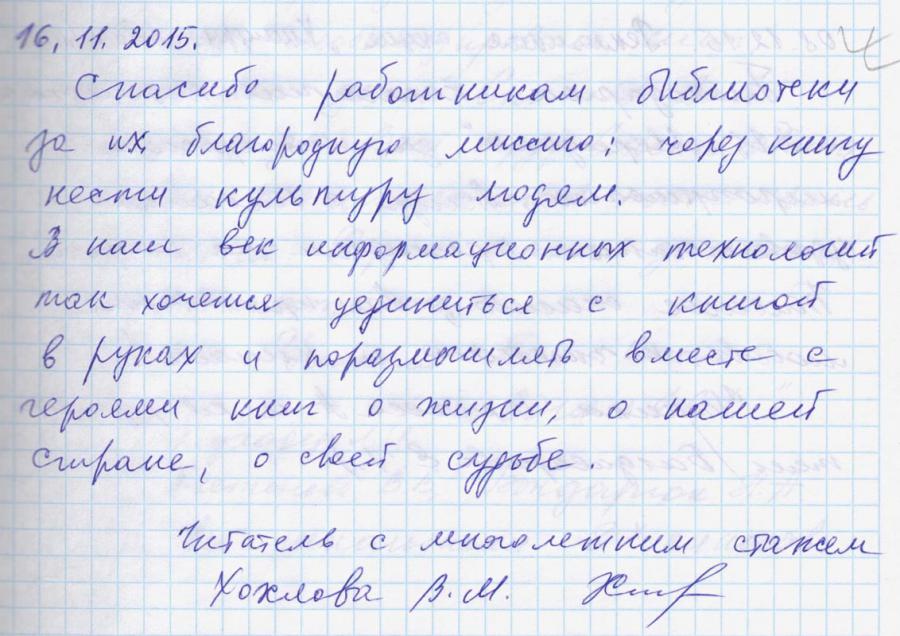 16.11.2015.
Спасибо работникам библиотеки
за их благородную миссию: через книгу
нести культуру людям.
В наш век информационных технологий
так хочется уединиться с книгой
в руках и поразмышлять вместе с
героями книг о жизни, о нашей
стране, о своей судьбе.
Читатель с многолетним стажем
Хохлова В.М.